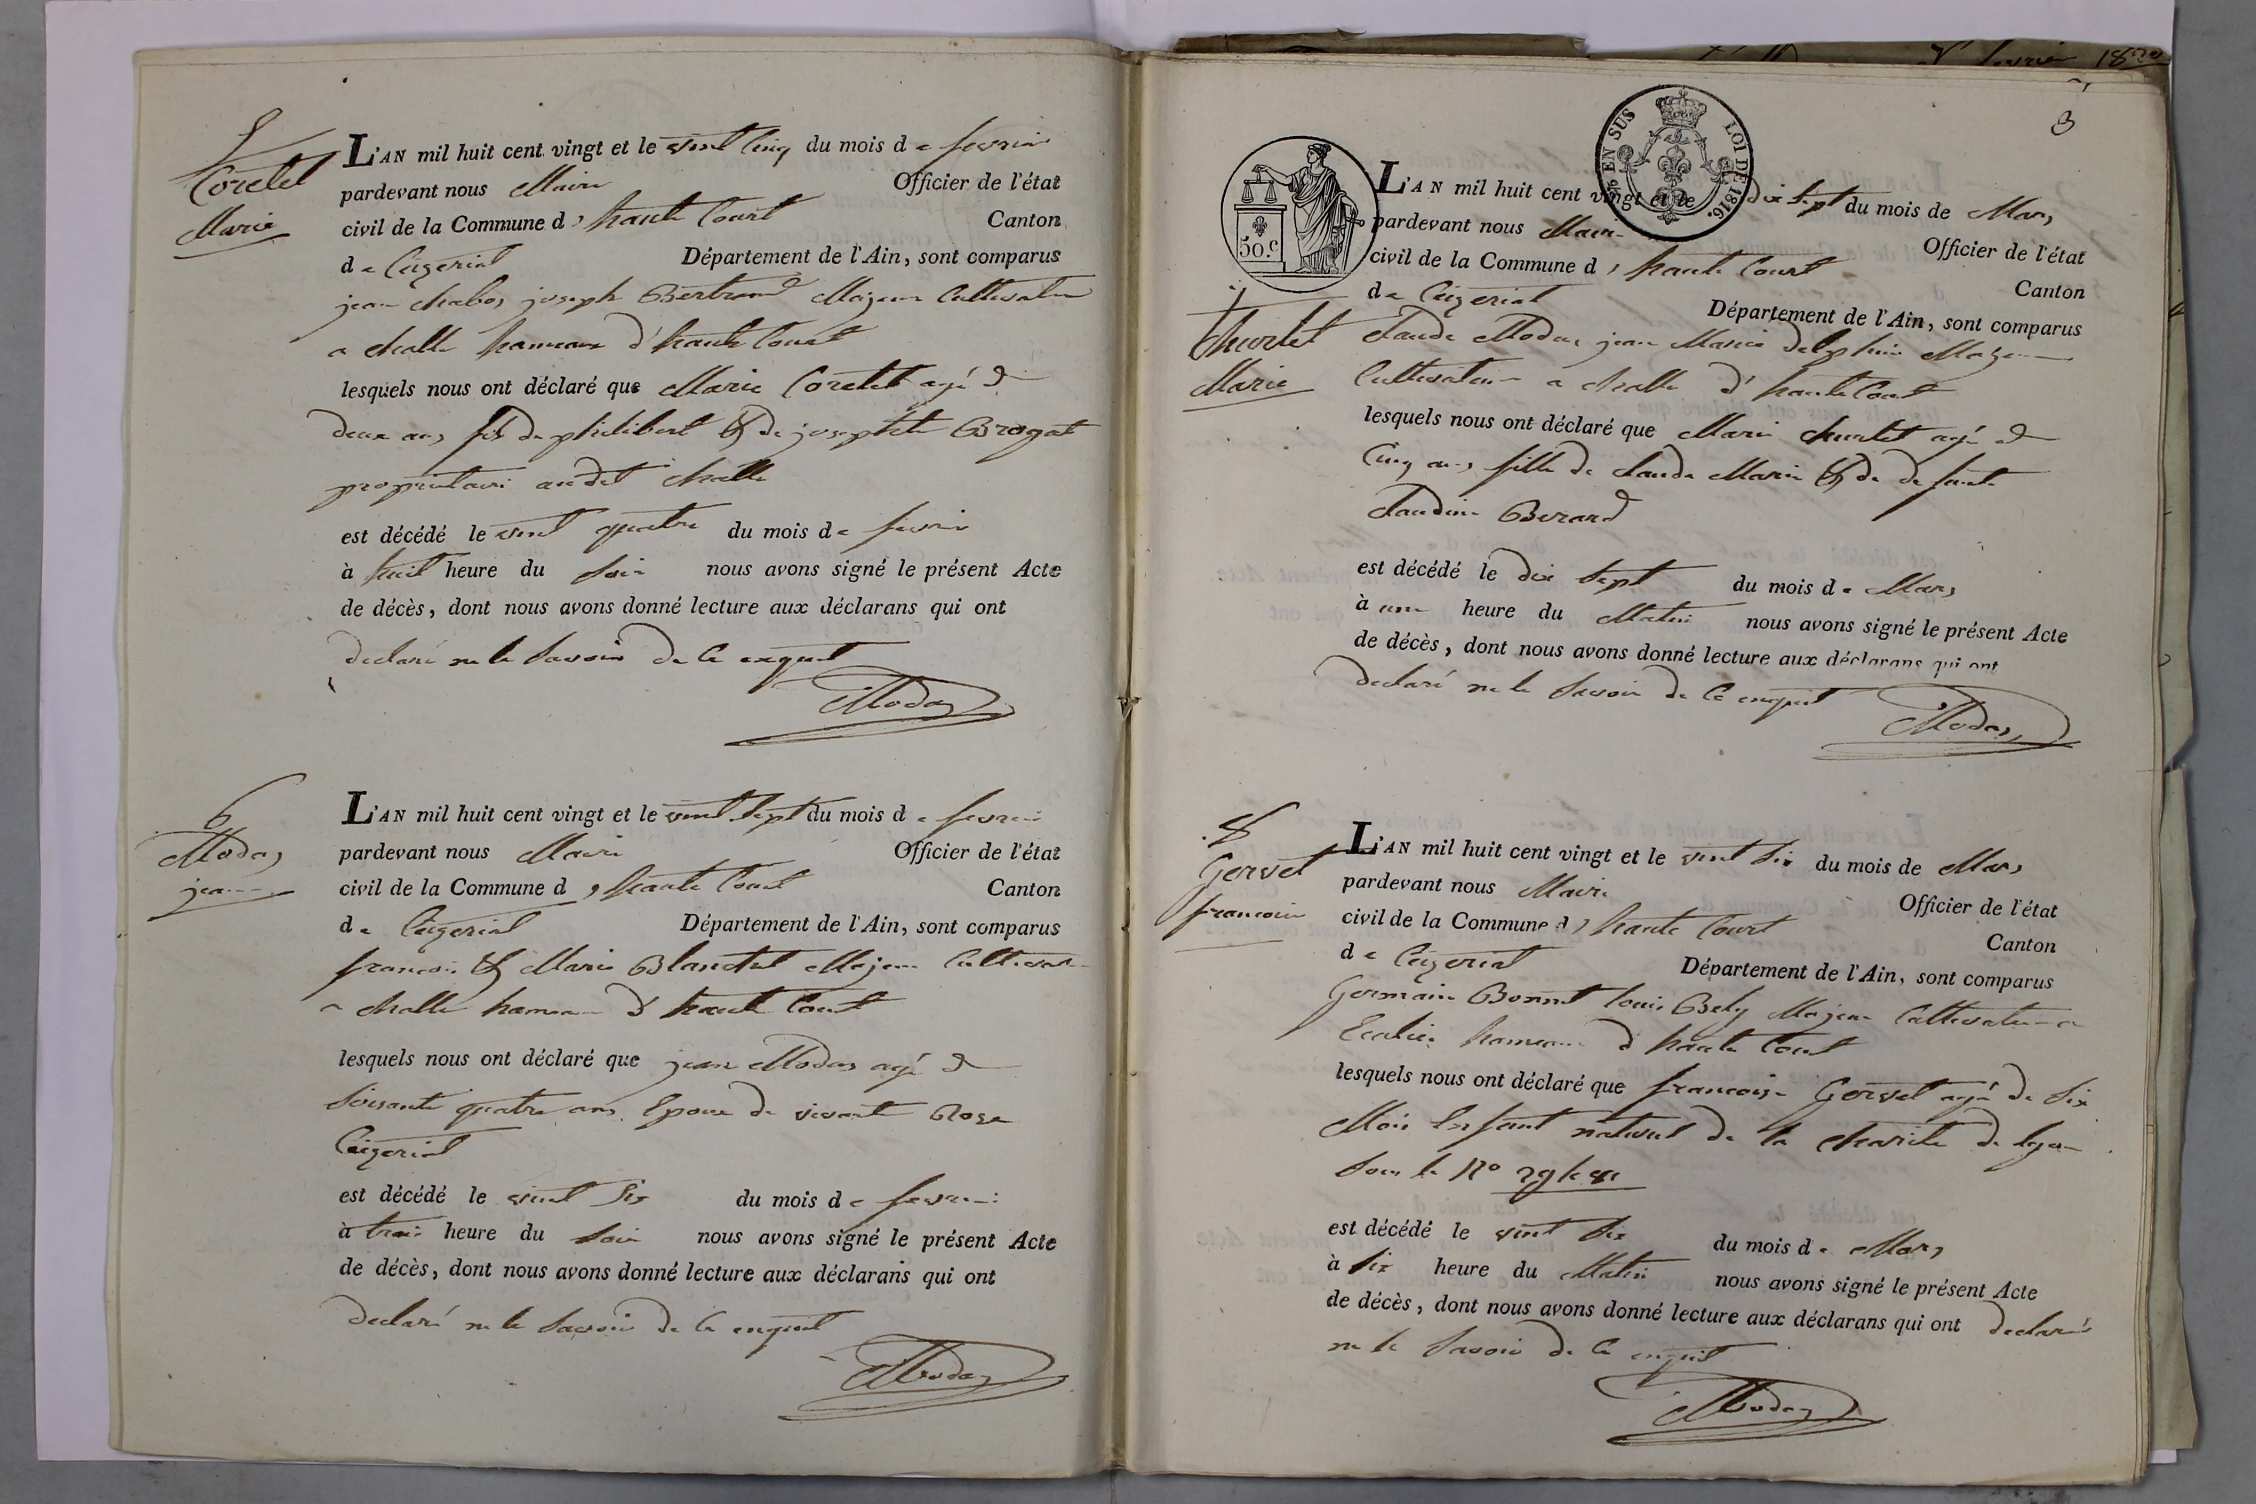 5
Coretet
Marie
L'AN mil huit cent vingt et le vint cinq du mois de fevrier
pardevant nous Maire Officier de l'état
civil de la Commune d, haute Court Canton
de Ceyzeriat Département de l'Ain, sont comparus
jean chabos joseph Bertrand Majeur Cultivateur
a challe hameaux d'haute Court
lesquels nous ont déclaré que Marie Coretet agé de
deux ans fils de philibert & de josephte Brogat
proprietaire au dit challe
est décédé le vint quatre du mois de fevrier
à huit heure du soir nous avons signé le présent Acte
de décès, dont nous avons donné lecture aux déclarans qui ont
declaré ne le savoir de ce enquit
Modas
6
Modas
jean
L'AN mil huit cent vingt et le vint sept du mois de fevrier
pardevant nous Maire Officier de l'état
civil de la Commune d, haute Court Canton
de Ceyzeriat Département de l'Ain, sont comparus
francois & Marie Blanchet Majeur Cultivateur
a challe hameau d haute Court
lesquels nous ont déclaré que jean Modas agé de
soisante quatre ans Epoux de vivante Roze
Ceyzeriat
est décédé le vint six du mois de fevrier
à trois heure du soir nous avons signé le présent Acte
de décès, dont nous avons donné lecture aux déclarans qui ont
declaré ne le savoir de ce enquit
Modas
3
EN SUS LOI DE 1816.
50.c
7
Churlet
Marie
L'AN mil huit cent vingt et le dix sept du mois de Mars
pardevant nous Maire Officier de l'état
civil de la Commune d, haute Court Canton
de Ceyzeriat Département de l'Ain, sont comparus
Claude Modas jean Marie delphin Majeur
Cultivateur a challe d'haute Court
lesquels nous ont déclaré que Marie churlet agé de
Cinq ans fille de claude Marie & de defunte
claudine Berard
est décédé le dix sept du mois de Mars
à une heure du Matin nous avons signé le présent Acte
de décès, dont nous avons donné lecture aux déclarans qui ont
declaré ne le savoir de ce enquit
Modas
8
Gervet
francoise
L'AN mil huit cent vingt et le vint six du mois de Mars
pardevant nous Maire Officier de l'état
civil de la Commune d, haute Court Canton
de Ceyzeriat Département de l'Ain, sont comparus
Germain Bonnet louis Bely Majeur Cultivateur a
hameau d haute Court
lesquels nous ont déclaré que francoise Gervet agé de six
Mois Enfant naturel de la charite de lyon
sous le No
est décédé le vint six du mois de Mars
à six heure du Matin nous avons signé le présent Acte
de décès, dont nous avons donné lecture aux déclarans qui ont declaré
ne le savoir de ce enquit
Modas